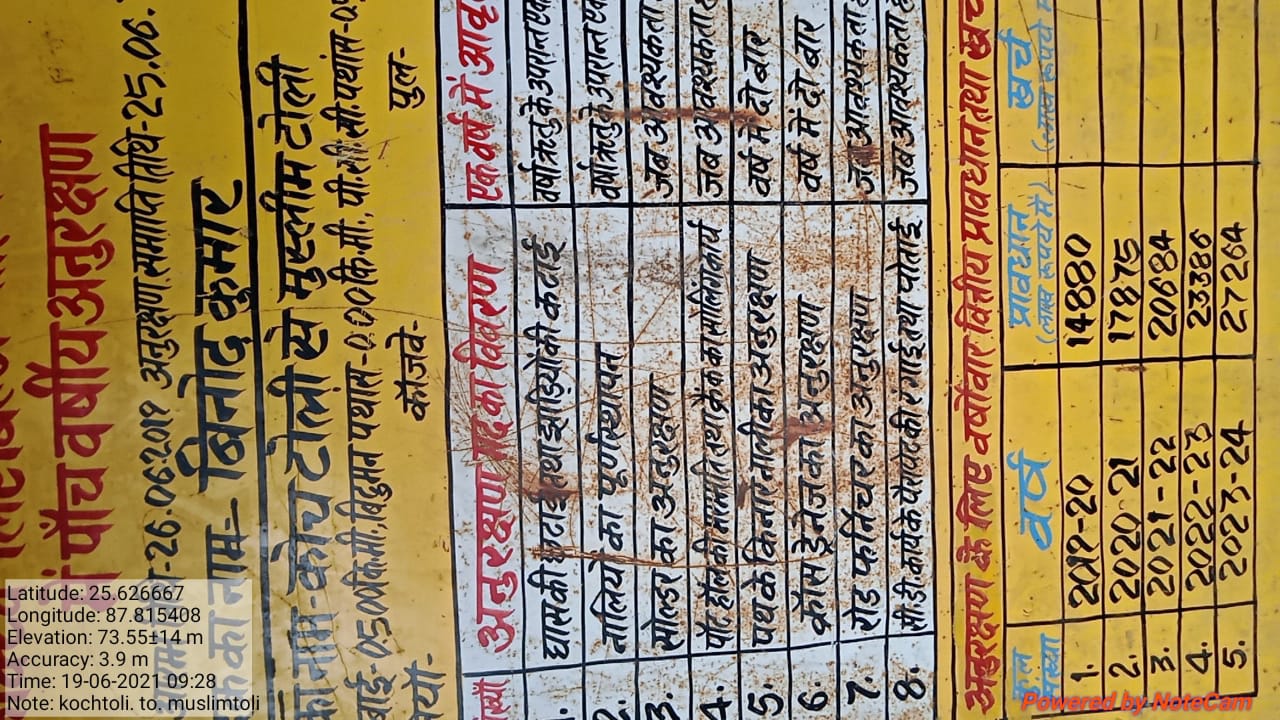 पाँच वर्षीय अनुरक्षण
-26.06.2019 अनुरक्षण समाप्ति तिथि-25.06.
का नाम- बिनोद कुमार
का नाम-कोच टोली से मुस्लीम टोली
-05.500 कि.मी., बिटुमन पथांस-0.00 कि.मी., पी.सी.सी. पथांस-05
कॉजवे- पुल-
अनुरक्षण मद का विवरण एक वर्ष में आवृ
घास की छटाई तथा झाड़ियों की कटाई वर्षा ऋतु के उपरान्त एक
2. नालियों का पूर्णस्थापन वर्षा ऋतु के उपरान्त एक
3. सोल्डर का अनुरक्षण जब आवश्यकता
4. पॉट हॉल की मरम्मति तथा क्रैक का सीलिंग कार्य जब आवश्यकता
5. पथ के किनारे नाली का अनुरक्षण वर्ष में दो बार
6. क्रॉस ड्रेनेज का अनुरक्षण वर्ष में दो बार
7. रोड फर्निचर का अनुरक्षण जब आवश्यकता
8. सी.डी. कार्य के पैरापेट की रंगाई तथा पोताई जब आवश्यकता
अनुरक्षण के लिए वर्षोवार वित्तीय प्रावधान तथा खर्च
संख्या वर्ष प्रावधान (लाख रूपये में) खर्च (लाख रूपये में
1. 2019-20 14880
2. 2020 21 17875
3. 2021-22 20684
4. 2022-23 23386
5. 2023-24 27264
Latitude: 25.626667
Longitude: 87.815408
Elevation: 73.55±14 m
Accuracy: 3.9 m
Time: 19-06-2021 09:28
Note: kochtoli. to. muslimtoli
Powered by NoteCam